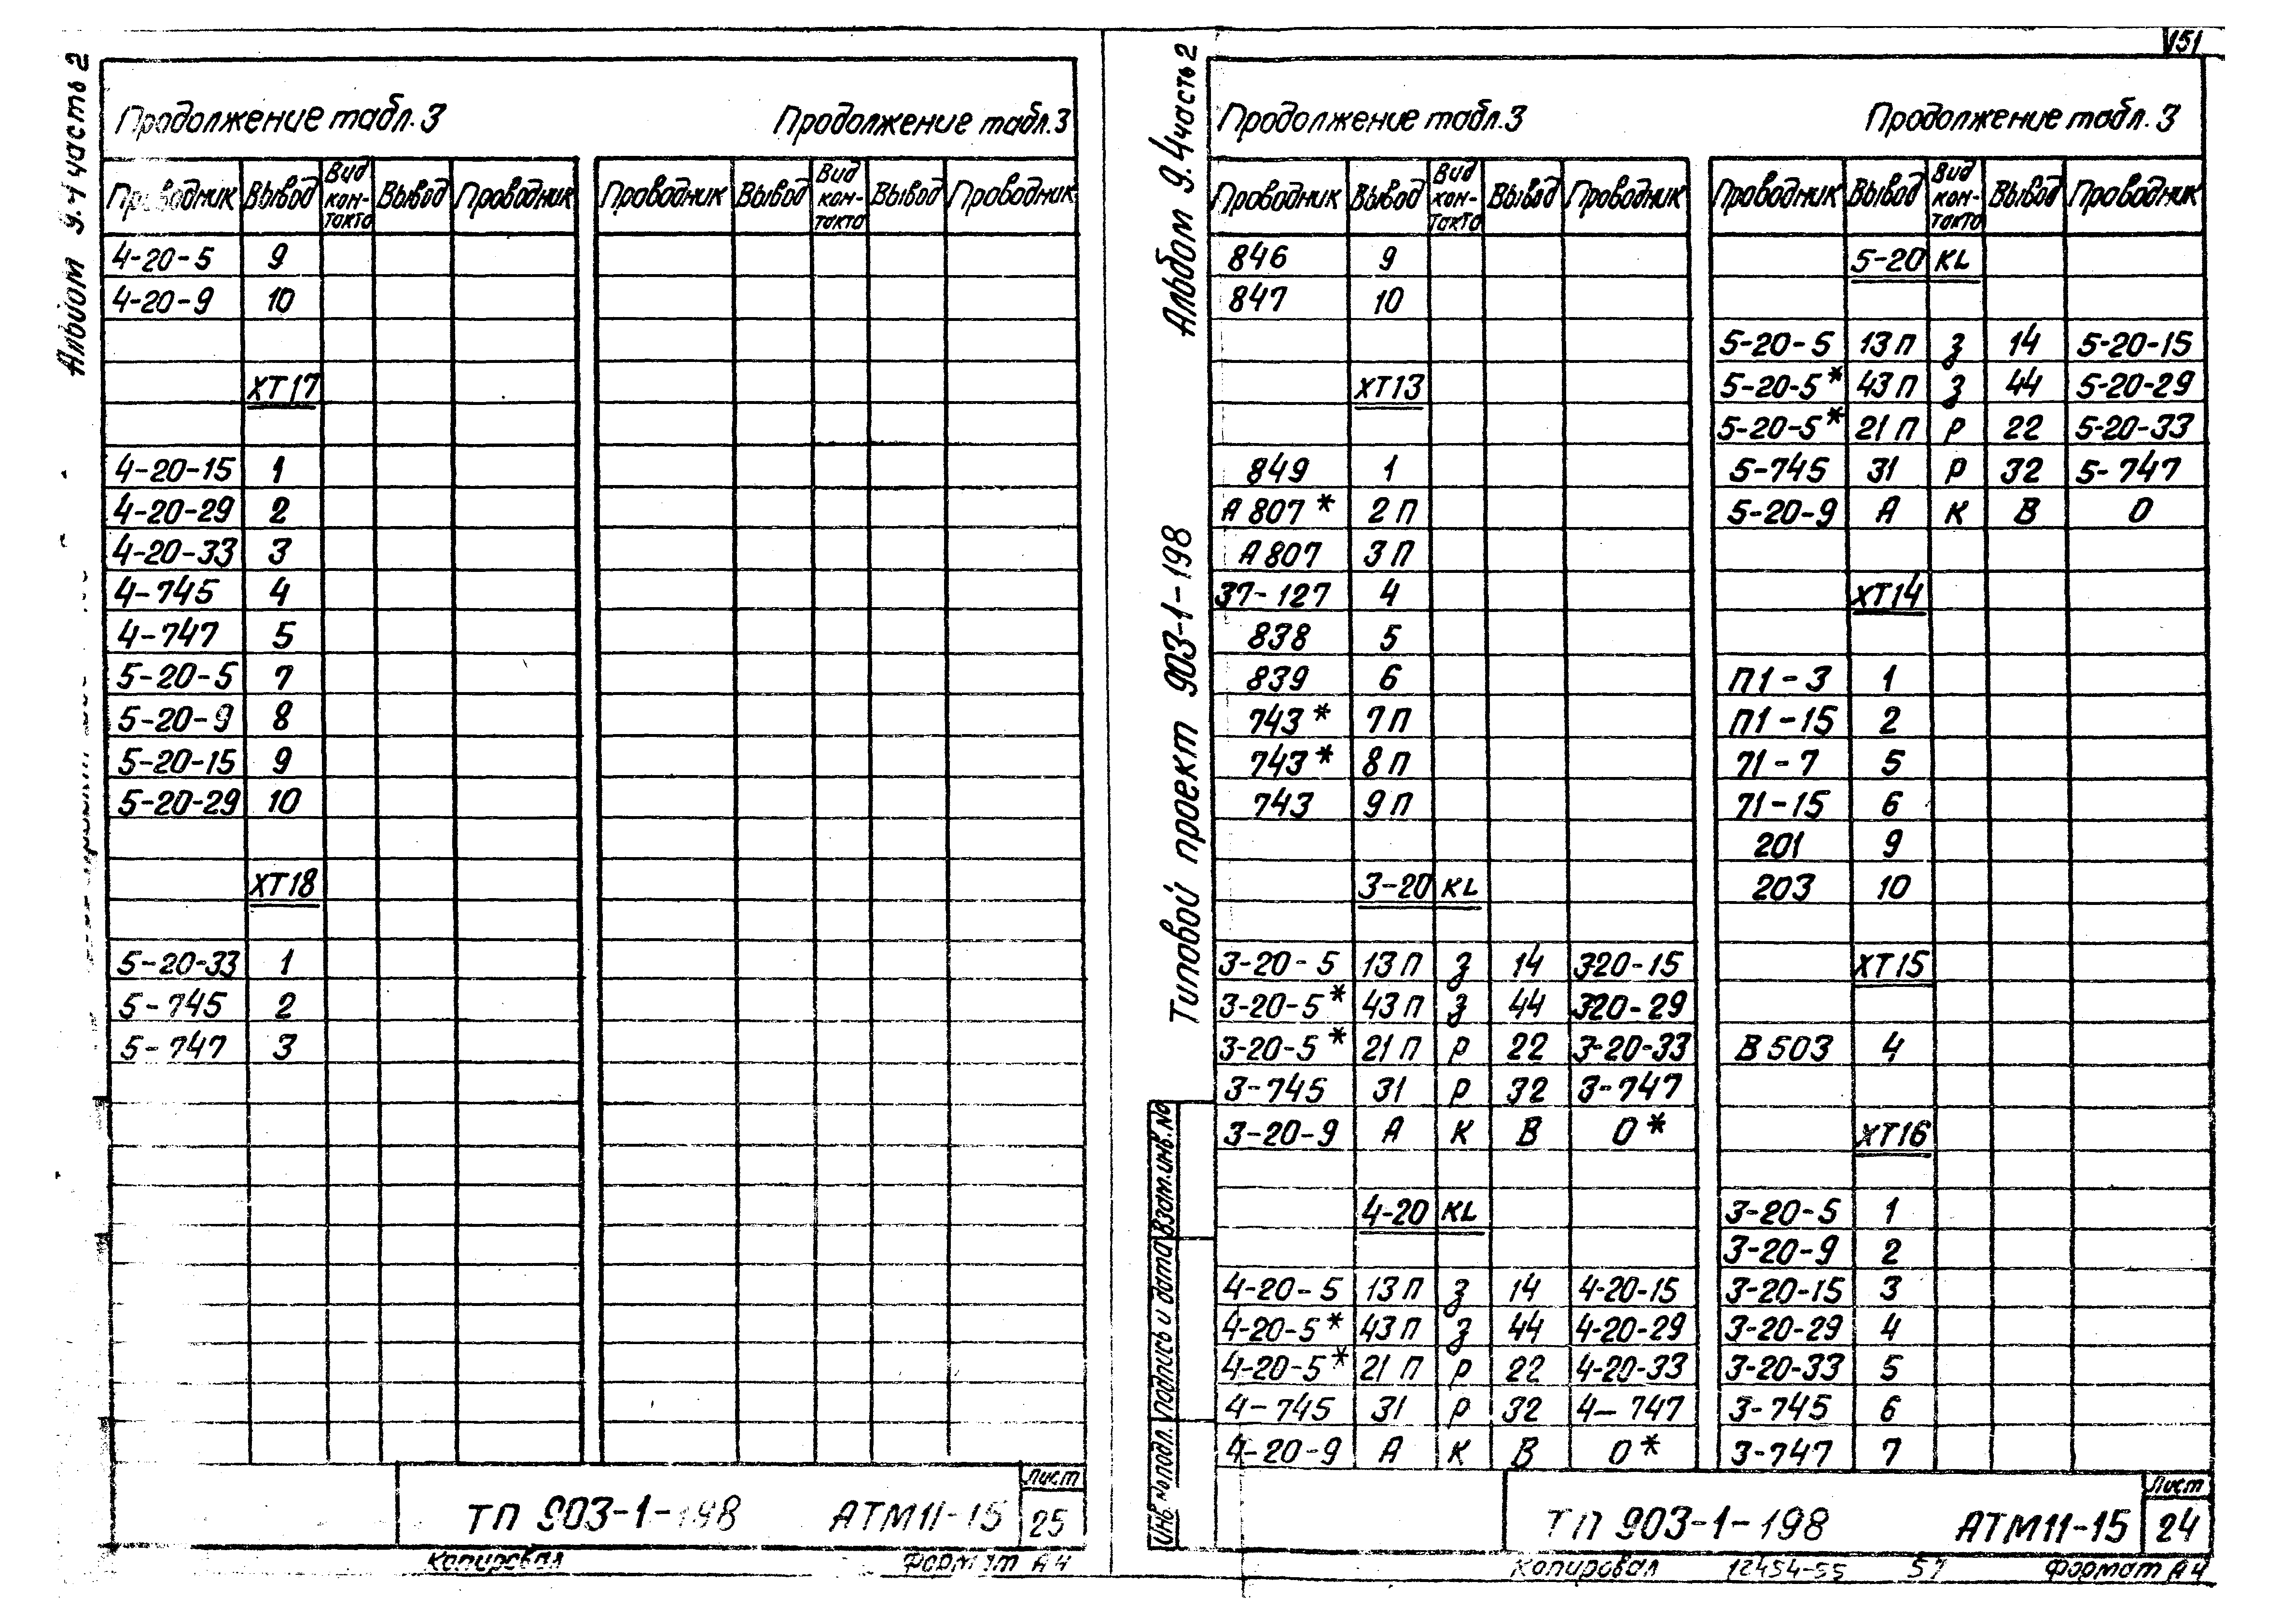 151
Альбом 9.4 часть 2
Продолжение табл.3 Продолжение табл.3
Проводник Вывод Вид кон-такта Вывод Проводник Проводник Вывод Вид кон-такта Вывод Проводник
4-20-5 9
4-20-9 10
XT17
4-20-15 1
4-20-29 2
4-20-33 3
4-745 4
4-747 5
5-20-5 7
5-20-9 8
5-20-15 9
5-20-29 10
XT18
5-20-33 1
5-745 2
5-747 3
ТП 903-1-198 АТМ11-15 Лист 25
Копировал Формат А4
Альбом 9.4 часть 2
Типовой проект 903-1-198
Продолжение табл.3 Продолжение табл.3
Проводник Вывод Вид кон-такта Вывод Проводник Проводник Вывод Вид кон-такта Вывод Проводник
846 9
847 10
XT13
849 1
А807* 2П
А807 3П
37-127 4
838 5
839 6
743* 7П
743* 8П
743 9П
3-20 KL
3-20-5 13П З 14 320-15
3-20-5* 43П З 44 320-29
3-20-5* 21П Р 22 3-20-33
3-745 31 Р 32 3-747
3-20-9 А К В О*
4-20 KL
4-20-5 13П З 14 4-20-15
4-20-5* 43П З 44 4-20-29
4-20-5* 21П Р 22 4-20-33
4-745 31 Р 32 4-747
4-20-9 А К В О*
5-20 KL
5-20-5 13П З 14 5-20-15
5-20-5* 43П З 44 5-20-29
5-20-5* 21П Р 22 5-20-33
5-745 31 Р 32 5-747
5-20-9 А К В О
XT14
П1-3 1
П1-15 2
71-7 5
71-15 6
201 9
203 10
XT15
В503 4
XT16
3-20-5 1
3-20-9 2
3-20-15 3
3-20-29 4
3-20-33 5
3-745 6
3-747 7
Инв № подл. Подпись и дата Взам.инв.№
ТП 903-1-198 АТМ11-15 Лист 24
Копировал 12454-55 57 Формат А4